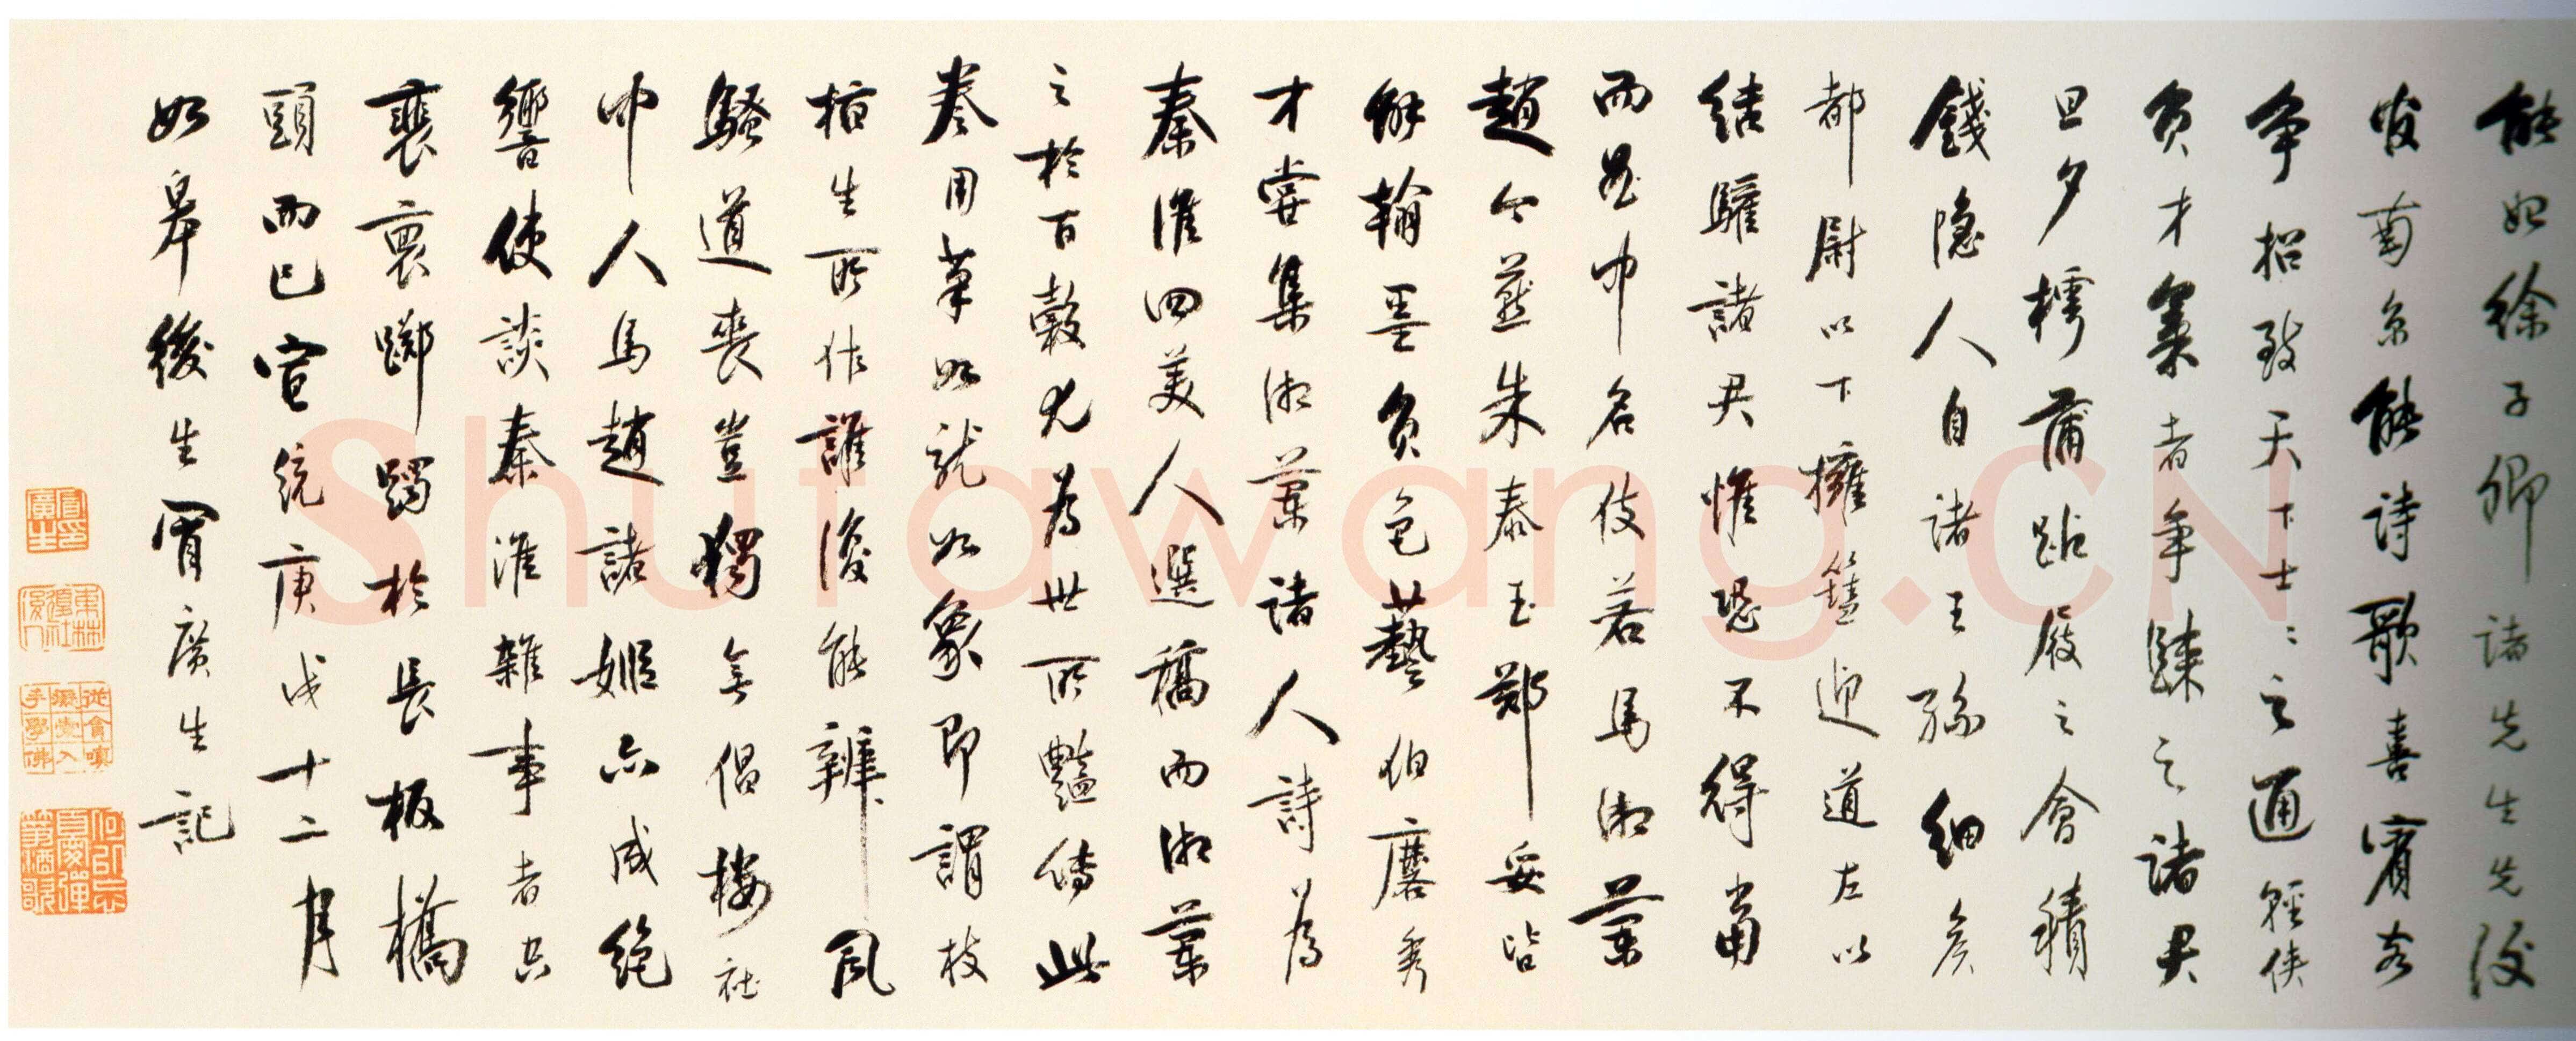 能如徐子卿諸先生先後
出南京能詩歌喜賓客
爭招致天下士士之通輕俠
負才氣者爭歸之諸君
旦夕樗蒲跕屐之會積
錢隱人自諸王孫細侯
都尉以下擁篲迎道左以
結驩諸君惟恐不得當
而巾名伎若馬湘蘭
趙今燕朱泰玉鄭妥皆
解翰墨負色藝伯麐秀
才嘗集湘蘭諸人詩為
秦淮四美人選稿而湘蘭
之於百穀尤為世所豔傳此
卷用筆如龍如象即謂枝
指生所作誰復能辨風
騷道喪豈獨無倡樓社
中人馬趙諸姬亦成絕
響使談秦淮雜事者空
裴裹躑躅於長板橋
頭而已宣統庚戌十二月
如皋後生冒廣生記
冒廣生印
東林復社後人
Shufawang.CN